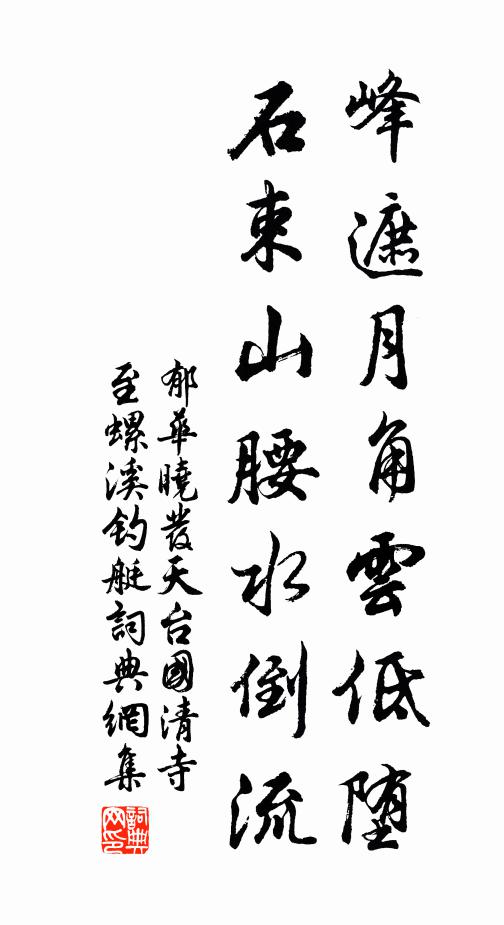 峰遮月角雲低堕
石束山腰水倒流
郁華曉發天台國清寺
至螺溪釣艇詞典網集
詞典
网印